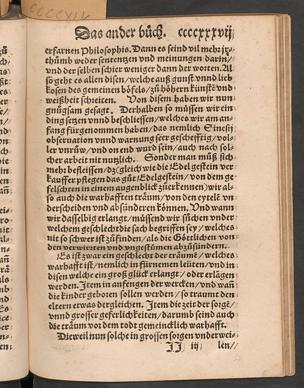 Das ander bůch. ccccxxxvij
erfarnen Philosophis. Dann es seind vil mehr jr-
thůmb weder sentenzen vnd meinungen darin/
vnd der selben schier weniger dann der worten. Al
so geht es allen disen/ welche auß gunst vnnd lieb
kosen des gemeinen böfels/ zů höhern künste vnd
weißheit schreiten. Von disem haben wir nun
gnůgsam gesagt. Derhalben so müssen wir ein
ding setzen vnnd beschliessen/ welches wir am an-
fang fürgenommen haben/ das nemlich Sinesij
obseruation vnnd warnung seer gescheffig/ vol-
ler vnrůw/ vnd on end wurd sein/ auch nach sol-
cher arbeit nit nutzlich. Sonder man můß sich
mehr befleissen/ dz/ gleich wie die Edelgestein ver
kauffer pflegen das gůt Edelgestein/ von dem ge-
felschten in einem augenblick zůerkennen) wir al-
so auch die warhafften träum/ von den eytelē vn
derscheiden vnd absünderen können. Vnd wann
wir dasselbig erlangt/ müssend wir sůchen vnder
welchem geschlecht die sach begriffen sey/ welches
nit so schwer ist zůfinden/ als die Göttlichen von
den verwirrten vnd vngestümen abzůsündern.
Es ist zwar ein geschlecht der träume/ welches
warhafft ist/ nemlich in fürnemen leüten/ vnd in
disen welche ein groß glück erlangt/ oder erlägen
werden. Item in anfengen der wercken/ vnd wañ
die kinder geboren sollen werden/ so traumt den
eltern etwas dergleichen. Item die zeit der sorge/
vnnd grosser geferlichkeit/ darumb seind auch
die träum vor dem todt gemeincklich warhafft.
Dieweil nun solche in grossen sorgen vnderwei-
JJ iij len/